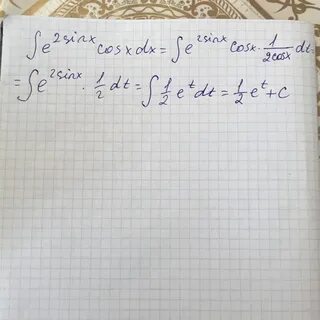 ∫e^{2sinx} cosx dx = ∫e^{2sinx} cosx · \frac{1}{2cosx} dt =
= ∫e^{2sinx} · \frac{1}{2} dt = ∫\frac{1}{2} e^t dt = \frac{1}{2} e^t + C